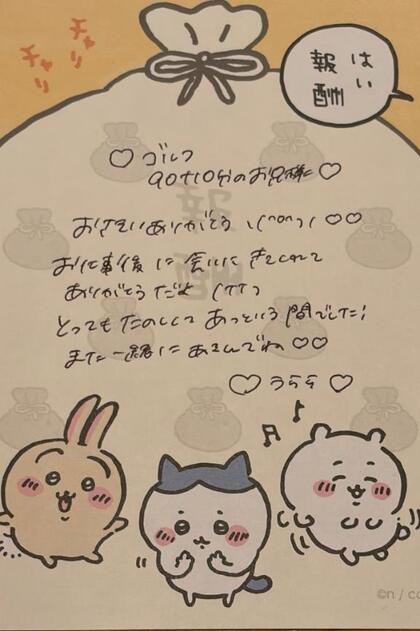 チャリ
チャリ
はい
報酬
♡ ゴルフ
90+10分のお兄様に♡
お会いありがとう ♡♡
お仕事後に会いにきてくれて
ありがとうだよ
とってもたのしくてあっという間でした!
また一緒にあそんでね♡♡
♡ うらら ♡
報酬
©n / c